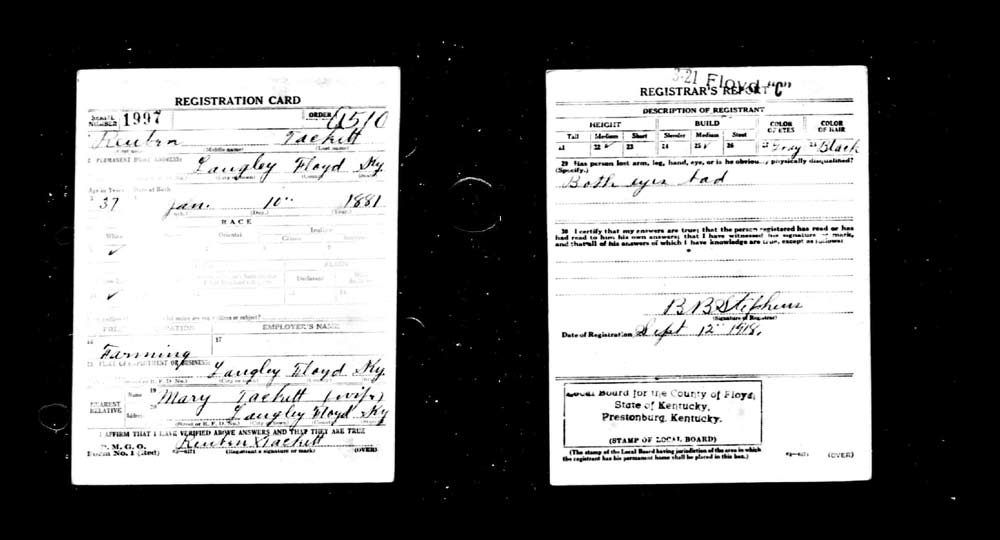 REGISTRATION CARD
SERIAL NUMBER 1997 ORDER 1510
Reuben Tackitt
(Middle name) (Last name)
2 PERMANENT HOME ADDRESS:
Langley Floyd Ky
Age in Years Date of Birth
37 Jan. 10 1881
(Day.) (Year.)
RACE
White Oriental Indian
Citizen
✓
ALIEN
Declarant
✓
EMPLOYER'S NAME
16 17
Farming
PLACE OF EMPLOYMENT OR BUSINESS:
Langley Floyd Ky.
NEAREST RELATIVE Name 19 Mary Tackitt (wife)
Address 20 Langley Floyd Ky
(Street or R. F. D. No.) (City or town) (County)
I AFFIRM THAT I HAVE VERIFIED ABOVE ANSWERS AND THAT THEY ARE TRUE
P. M. G. O.
Form No. 1 (Red) Reuben X Tackitt
(Registrant's signature or mark) (OVER)
3-21 Floyd "C"
REGISTRAR'S REPORT
DESCRIPTION OF REGISTRANT
HEIGHT BUILD COLOR OF EYES COLOR OF HAIR
Tall Medium Short Slender Medium Stout
21 22 ✓ 23 24 25 ✓ 26 27 Gray 28 Black
29 Has person lost arm, leg, hand, eye, or is he obviously physically disqualified?
(Specify.)
Both eyes bad
30 I certify that my answers are true; that the person registered has read or has
had read to him his own answers; that I have witnessed his signature or mark,
and that all of his answers of which I have knowledge are true, except as follows:
B B Stephens
(Signature of Registrar)
Date of Registration Sept 12 1918.
Local Board for the County of Floyd,
State of Kentucky,
Prestonburg, Kentucky.
(STAMP OF LOCAL BOARD)
(The stamp of the Local Board having jurisdiction of the area in which
the registrant has his permanent home shall be placed in this box.)
(OVER)